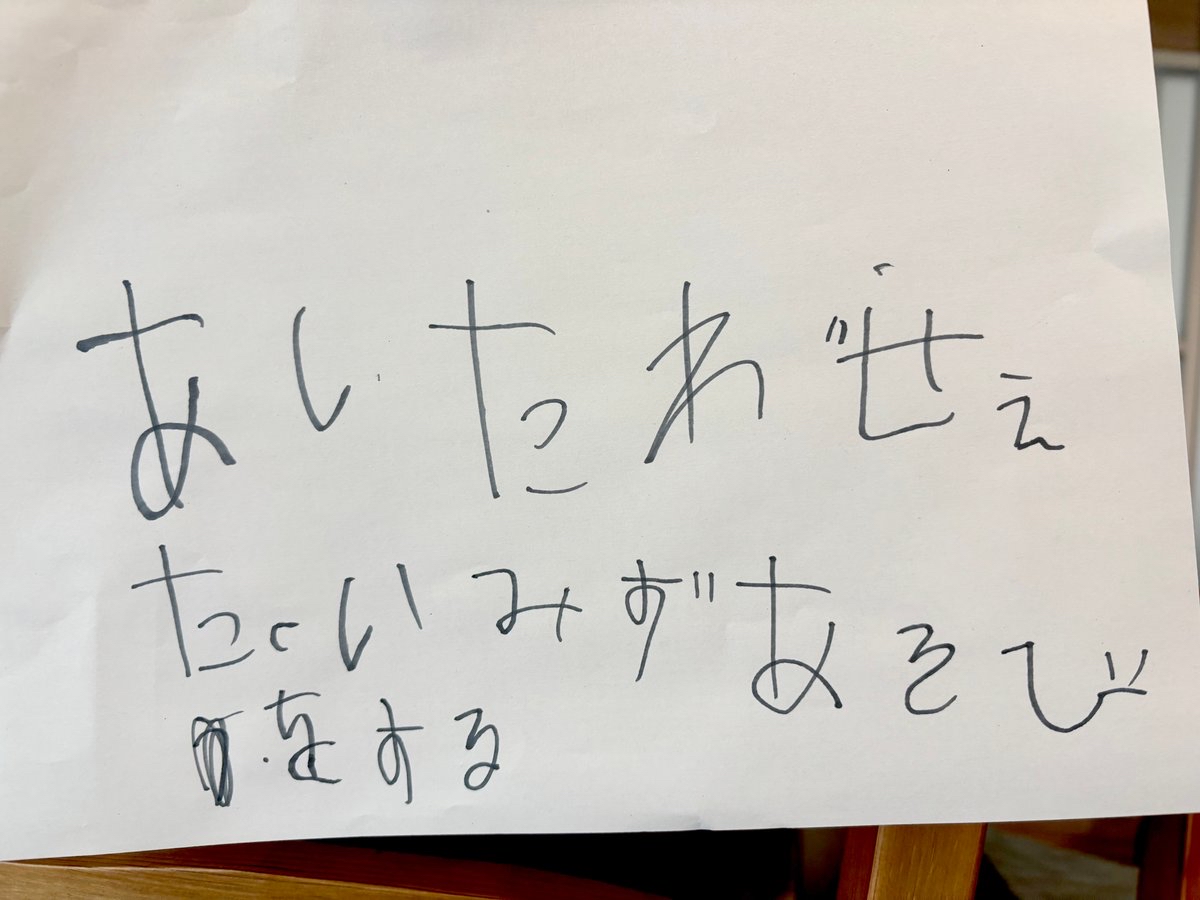 あしたわぜえ
たいみずあそび
をする